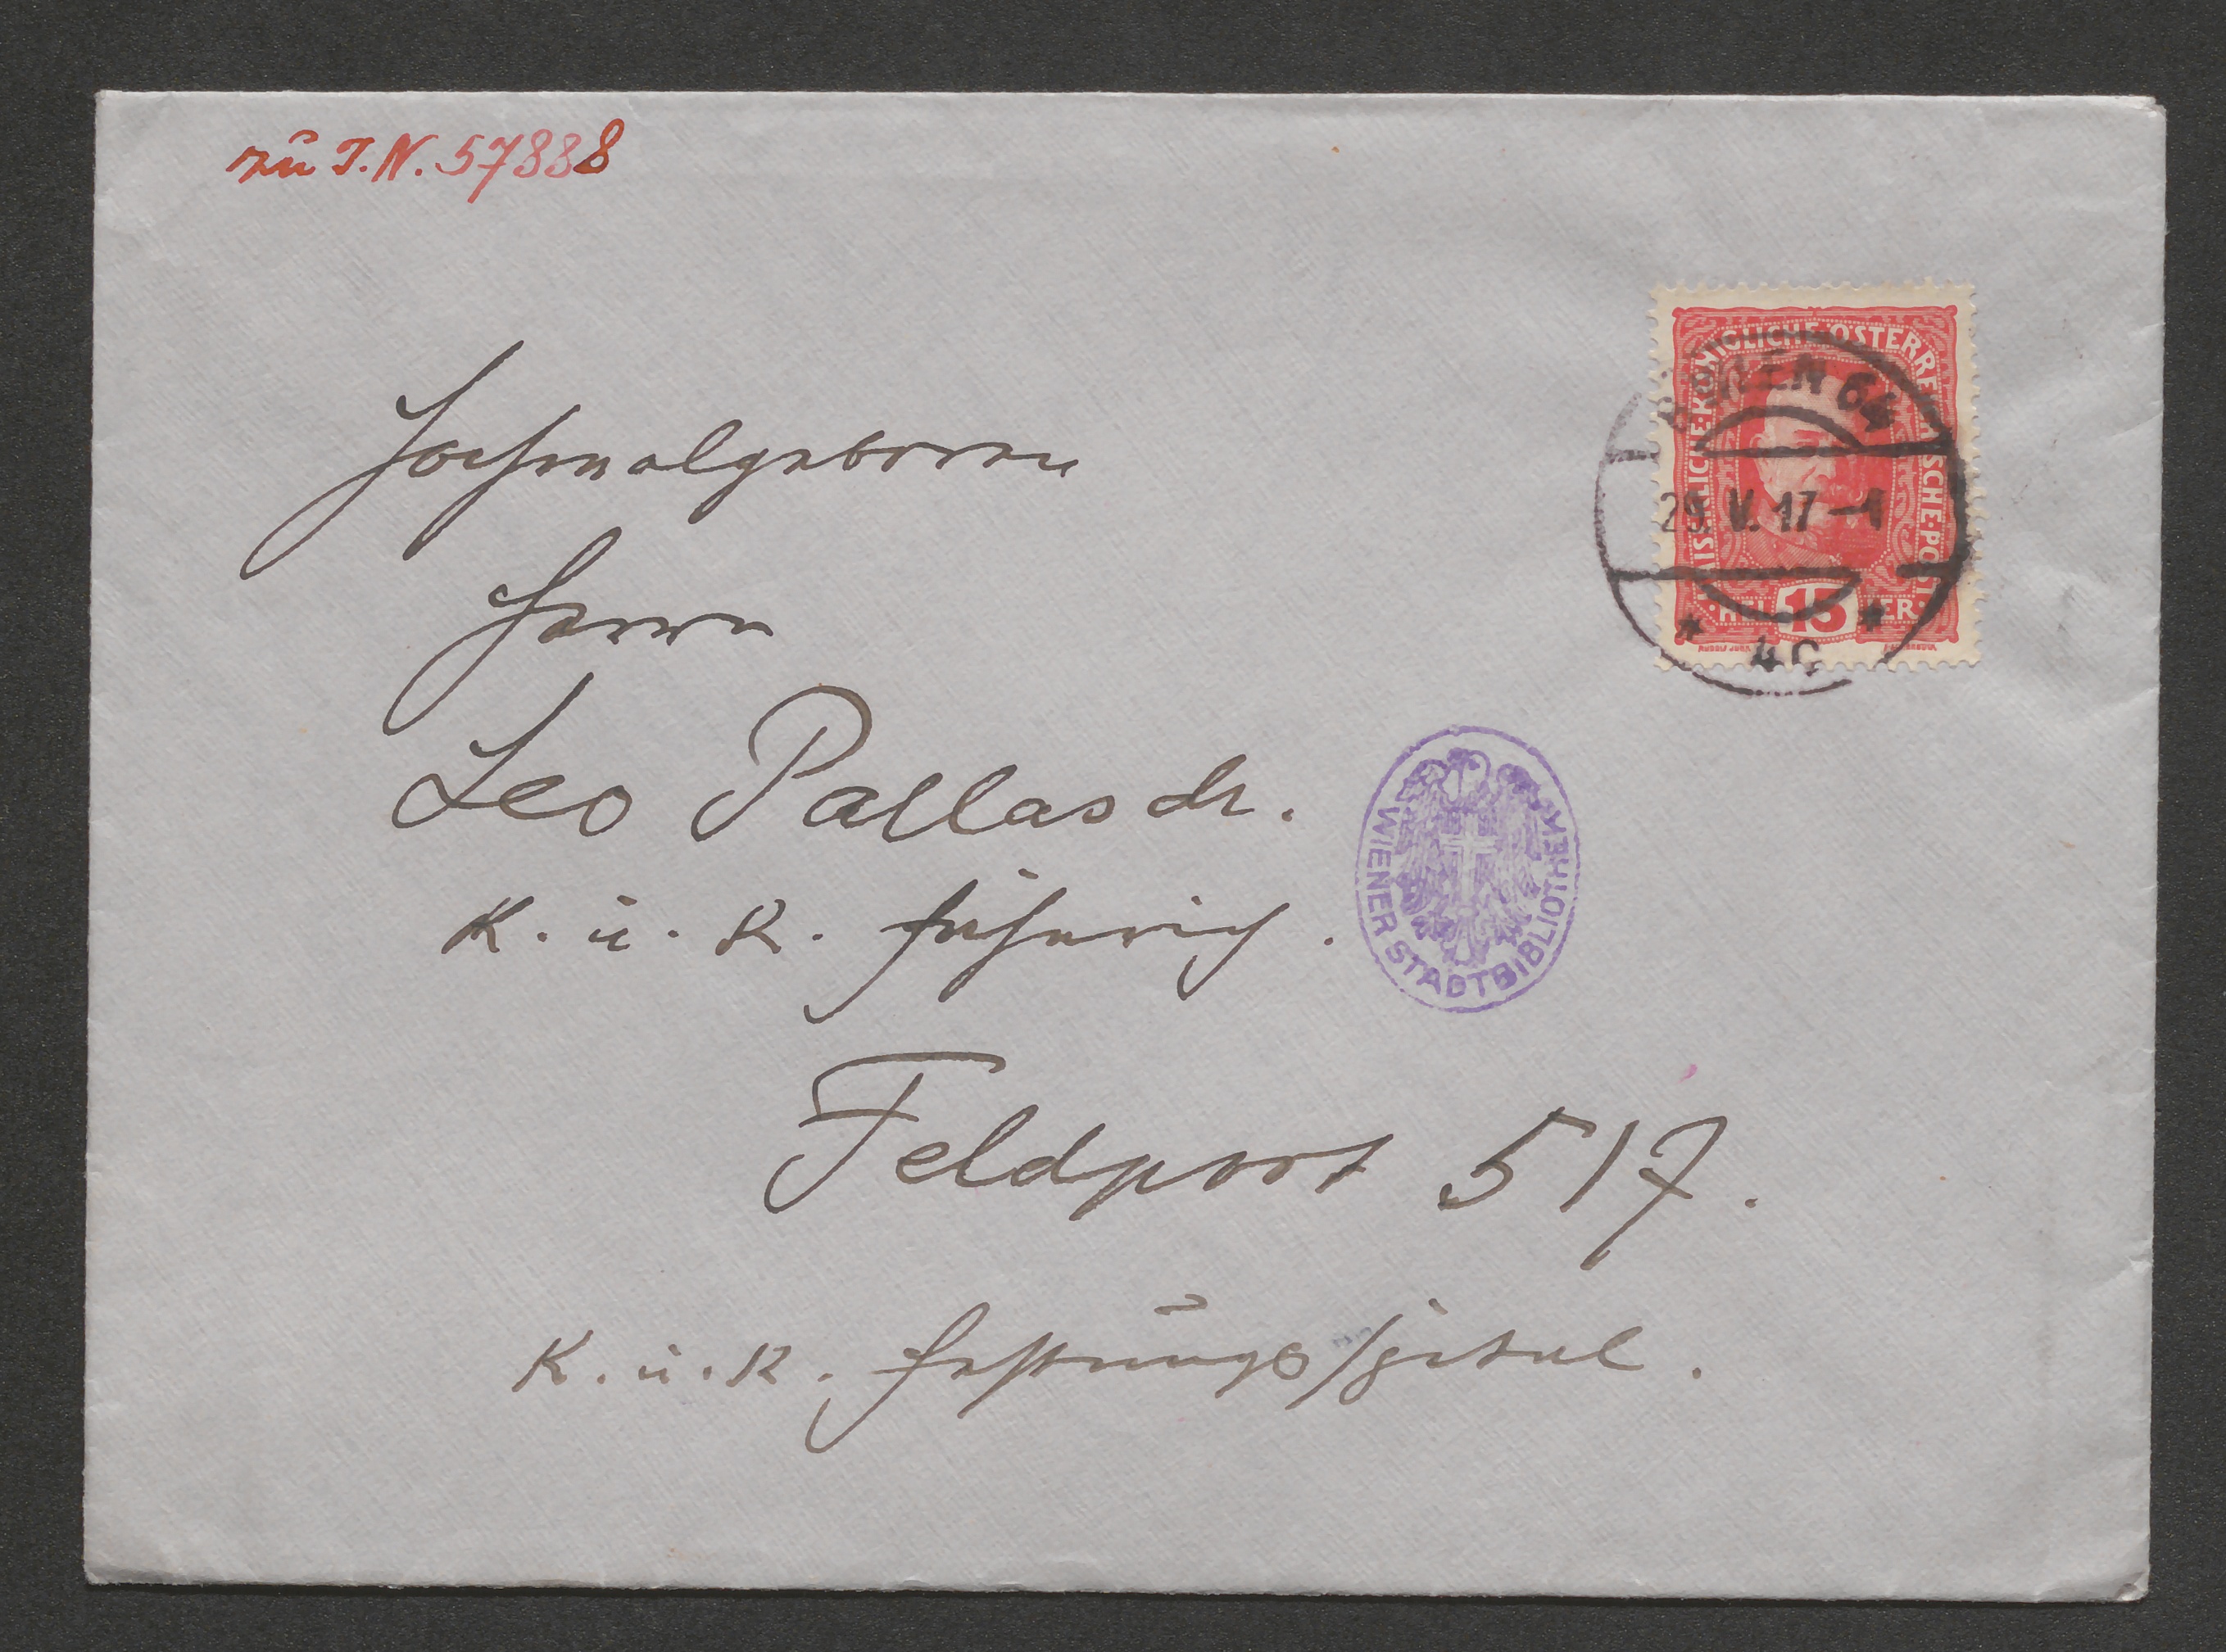 zu I.N. 57888
KAISERLICHE·KÖNIGLICHE·ÖSTERREICHISCHE·POST
WIEN 64
29. V. 17 - 1
HELLER
15
* 4c *
Hochwolgeboren
Herrn
Leo Pallasch.
K. u. K. Fähnrich.
WIENER STADTBIBLIOTHEK
Feldpost 517.
K. u. K. Festungsspital.